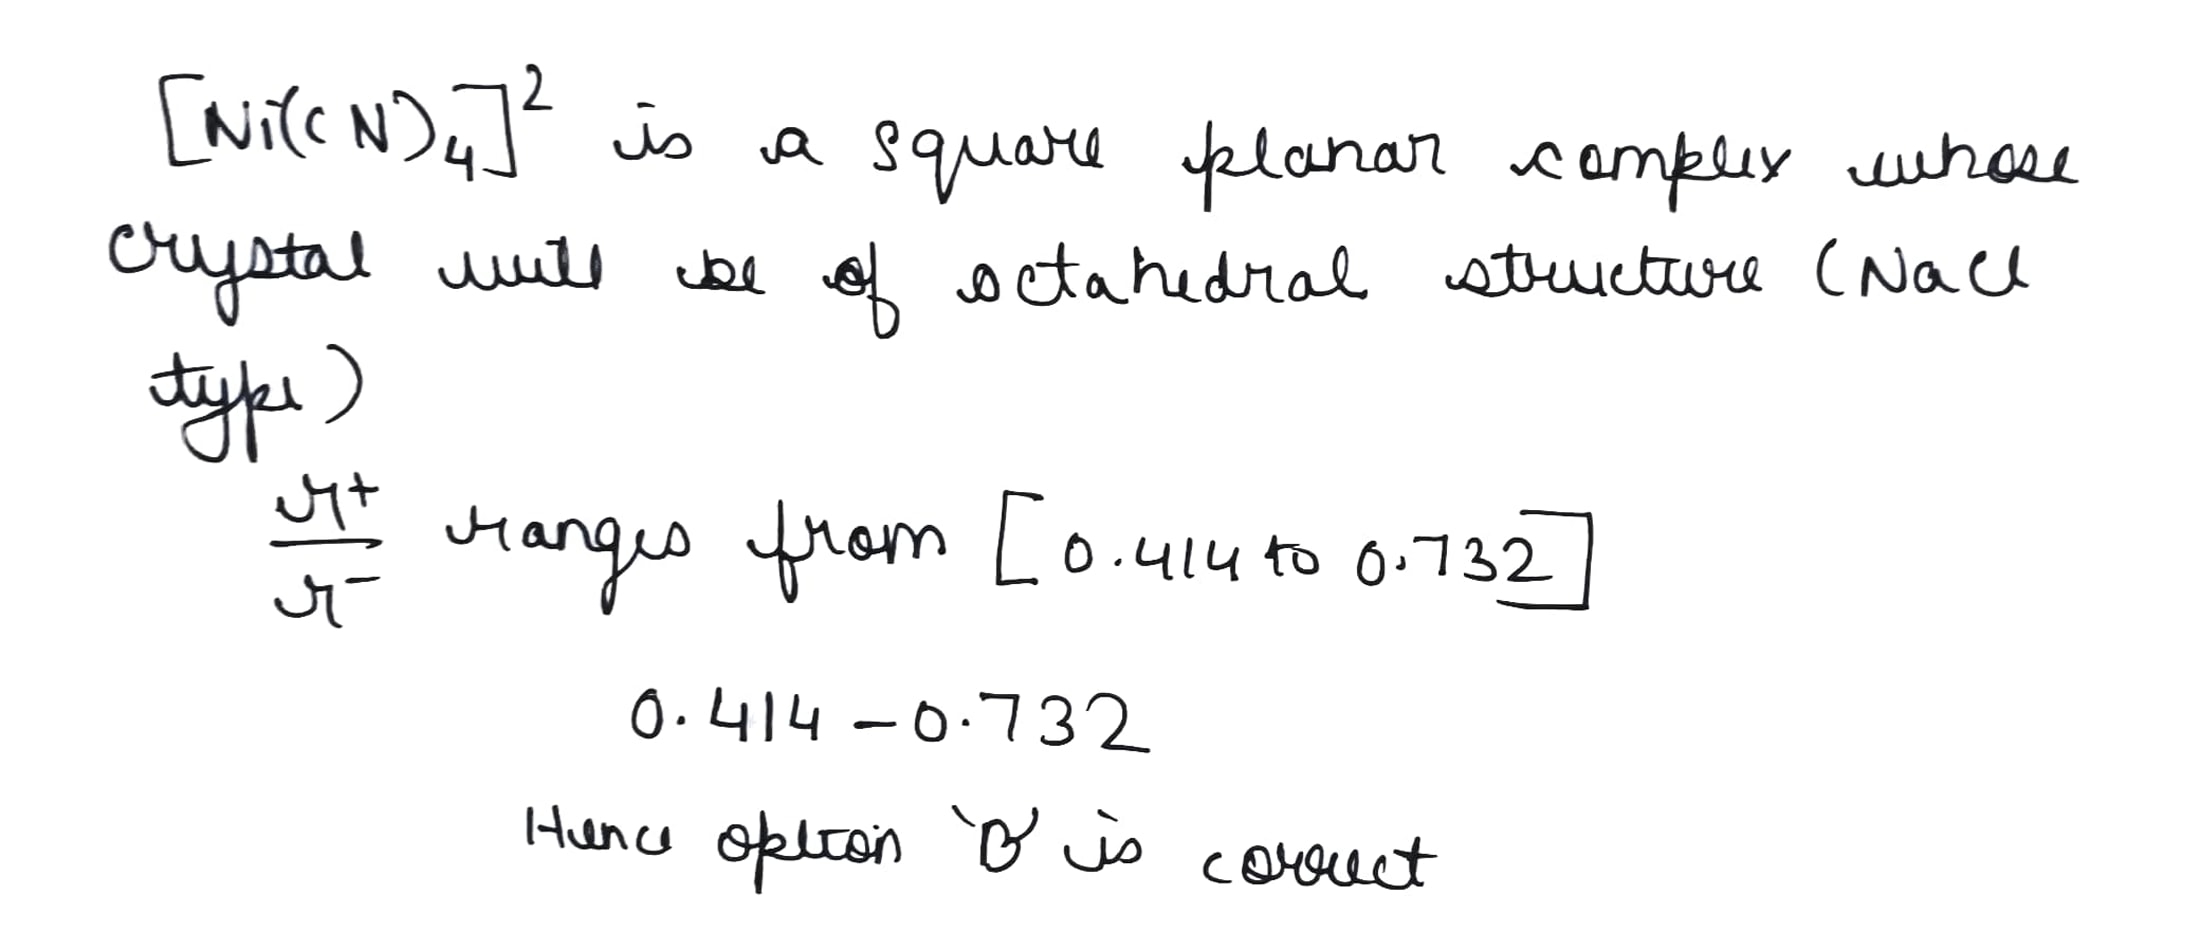 [Ni(CN)4]² is a square planar complex whose
crystal will be of octahedral structure (NaCl
type)
r+/r- ranges from [0.414 to 0.732]
0.414 - 0.732
Hence option 'B' is correct